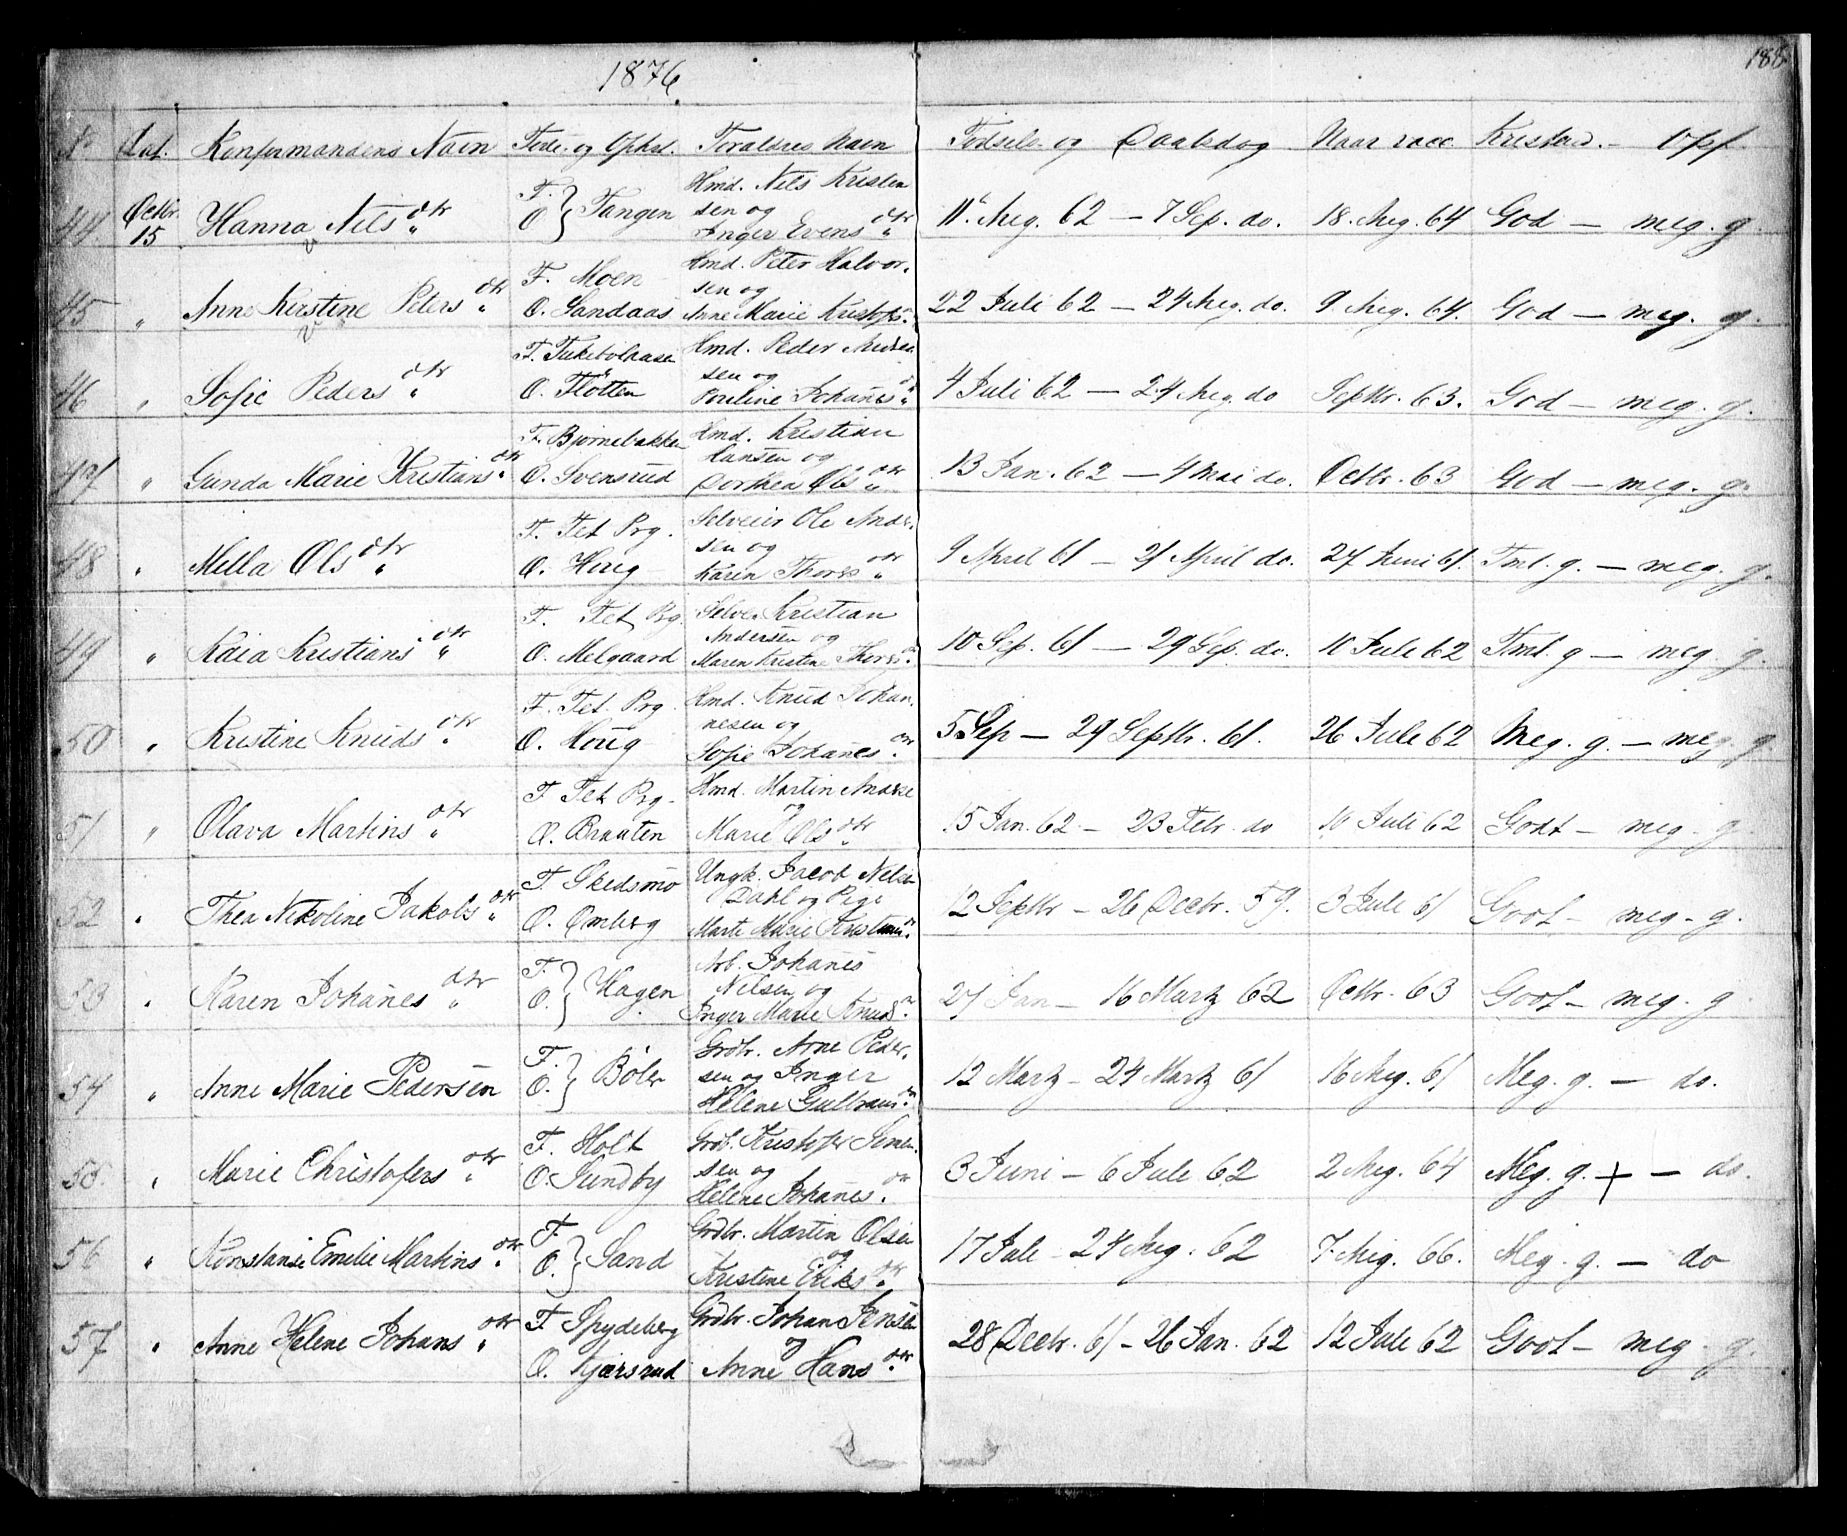 1876
188
No Dat. Konfirmandens Navn Føde- og Ophst. Foraldres Navn Fødsels og Daabsdag Naar vacc Kristend. - Opf
44. Octbr. 15 Hanna Nilsdtr F. O. } Tangen Hmd. Nils Kristen
sen og
Inger Evensdtr 11te Aug. 62 — 7 Sep. do. 18. Aug. 64 God — meg. g.
45 " Anne Kirstine Petersdtr F. Moen Hmd. Peter Halvor-
sen og
O. Sandaas Anne Marie Kristofs. 22 Juli 62 — 24 Aug. do. 9. Aug. 64. God — meg. g.
46 " Sofie Pedersdtr Hmd. Peder
sen og
O. Fløtten Pauline Johanesd. 4 Juli 62 — 24 Aug. do Septbr. 63. God — meg. g.
47 " Gunda Marie Kristiansdtr F. Bjørnebakken Hmd. Kristian
Hansen og
O. Svensrud Dorthea Olsdtr 13 Jan. 62 — 4 Mai do. Octbr. 63 God — meg. g.
48 " Mella Olsdtr F. Fet Prg. Selveier Ole Ander-
sen og
O. Houg Karen Thorsdtr 9 April 61 — 21 April do. 27 Juni 61. Tml. g. — meg. g.
49 " Kaia Kristiansdtr F. Fet Prg. Selve. Kristian
Andersen og
O. Melgaard Maren Kristin Thors. 10 Sep. 61 — 29 Sep. do. 10 Juli 62 Tml. g — meg. g.
50 " Kristine Knudsdtr F. Fet. Prg. Hmd. Knud Johan-
nesen og
O. Houg Sofie Johanesdtr 5 Sep — 29 Septbr. 61. 26 Juli 62 Meg. g. — meg. g
51 " Olava Martinsdtr F. Fet Prg. Hmd. Martin
og
O. Braaten Marie Olsdtr 15 Jan. 62 — 23 Febr. do 10 Juli 62 Godt — meg. g
52 " Thea Nikoline Jakobsdtr F. Skedsmo Ungk. Jacob Nilsen
Dahl og Pige
O. Omberg Marte Marie 12 Septbr — 26 Decbr. 59. 3 Juli 61 Godt — meg. g.
53 " Karen Johanesdtr F. O. } Hagen Arb. Johanes
Nilsen og
Inger Marie Knuds. 27 Jan — 16 Martz 62 Octbr. 63 Godt — meg. g
54 " Anne Marie Pedersen F. O. } Bøler Grdbr. Arne Peder-
sen og Inger
Helene 12 Martz — 24 Martz 61 16 Aug. 61 Meg. g. — do.
55. " Marie Christofersdtr F. Holt Grdb. Kristofer Simen-
sen og
O. Sundby Helene Johanes. 3 Juni — 6 Juli 62 2 Aug. 64 Meg. g. + — do.
56 " Konstanse Emilie Martinsdtr F. O. } Sand Grdbr. Martin Olsen
og
Kristine Eriksdtr 17 Juli — 24 Aug. 62 7. Aug. 66. Meg. g. — do
57 " Anne Helene Johansdtr F. Spydeberg Grdbr. Johan Jensen
og
O. Kjærsrud Anne Hansdtr 28 Decbr. 61 — 26 Jan. 62 12 Juli 62 Godt — meg. g.